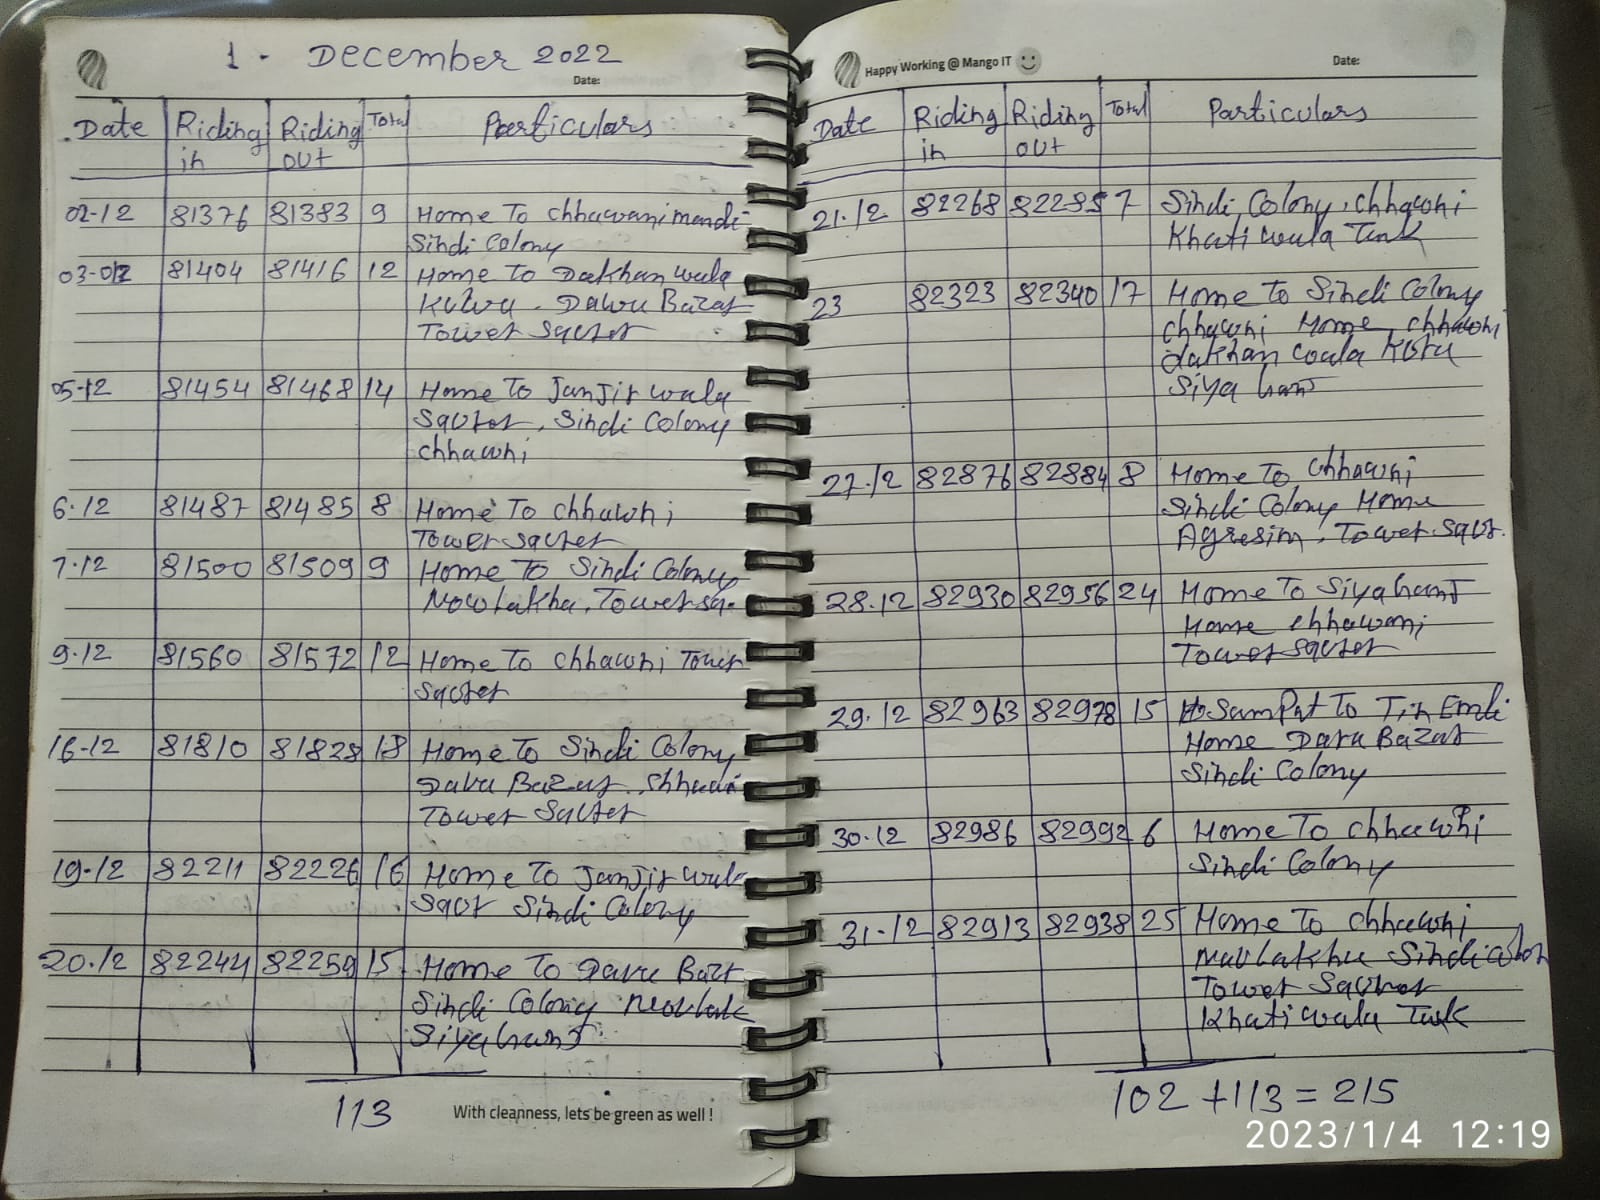 1 - December 2022
Date:
Date Riding in Riding out Total Particulars
02-12 81376 81383 9 Home To chhawani mandi
Sindi Colony
03-012 81404 81416 12 Home To Dakhan wala
Dawa Bazar
Tower Sqcter
05-12 81454 81468 14 Home To Janjir wala
Sqcter, Sindi Colony
chhawni
6.12 81487 81485 8 Home To chhawni
Tower sqcter
7.12 81500 81509 9 Home To Sindi Colony
Nowlakha, Tower sq.
9.12 81560 81572 12 Home To chhawni Tower
Sqcter
16-12 81810 81828 18 Home To Sindi Colony
Dava Bazar
Tower Sqcter
19-12 82211 82226 16 Home To Janjir wala
Sqcr Sindi Colony
20.12 82244 82259 15 Home To Dava
Sindi Colony
Siyaganj
113
With cleanness, lets be green as well !
Happy Working @ Mango IT
Date:
Date Riding in Riding out Total Particulars
21.12 82268 7 Sindi Colony, chhawni
Khati wala Tank
23 82323 82340 17 Home To Sindi Colony
chhawni Home, chhawni
dakhan wala
27.12 82876 82884 8 Home To chhawni
Sindi Colony Home
Agresim, Tower sqcr.
28.12 82930 82956 24 Home To Siyaganj
Home chhawoni
Tower sqcter
29.12 82963 82978 15 SamPat To Tin Emli
Home Dava Bazar
Sindi Colony
30.12 82986 82992 6 Home To chhawni
Sindi Colony
31-12 82913 82938 25 Home To chhawni
Tower Sqcter
Khati wala Tank
102 + 113 = 215
2023/1/4 12:19